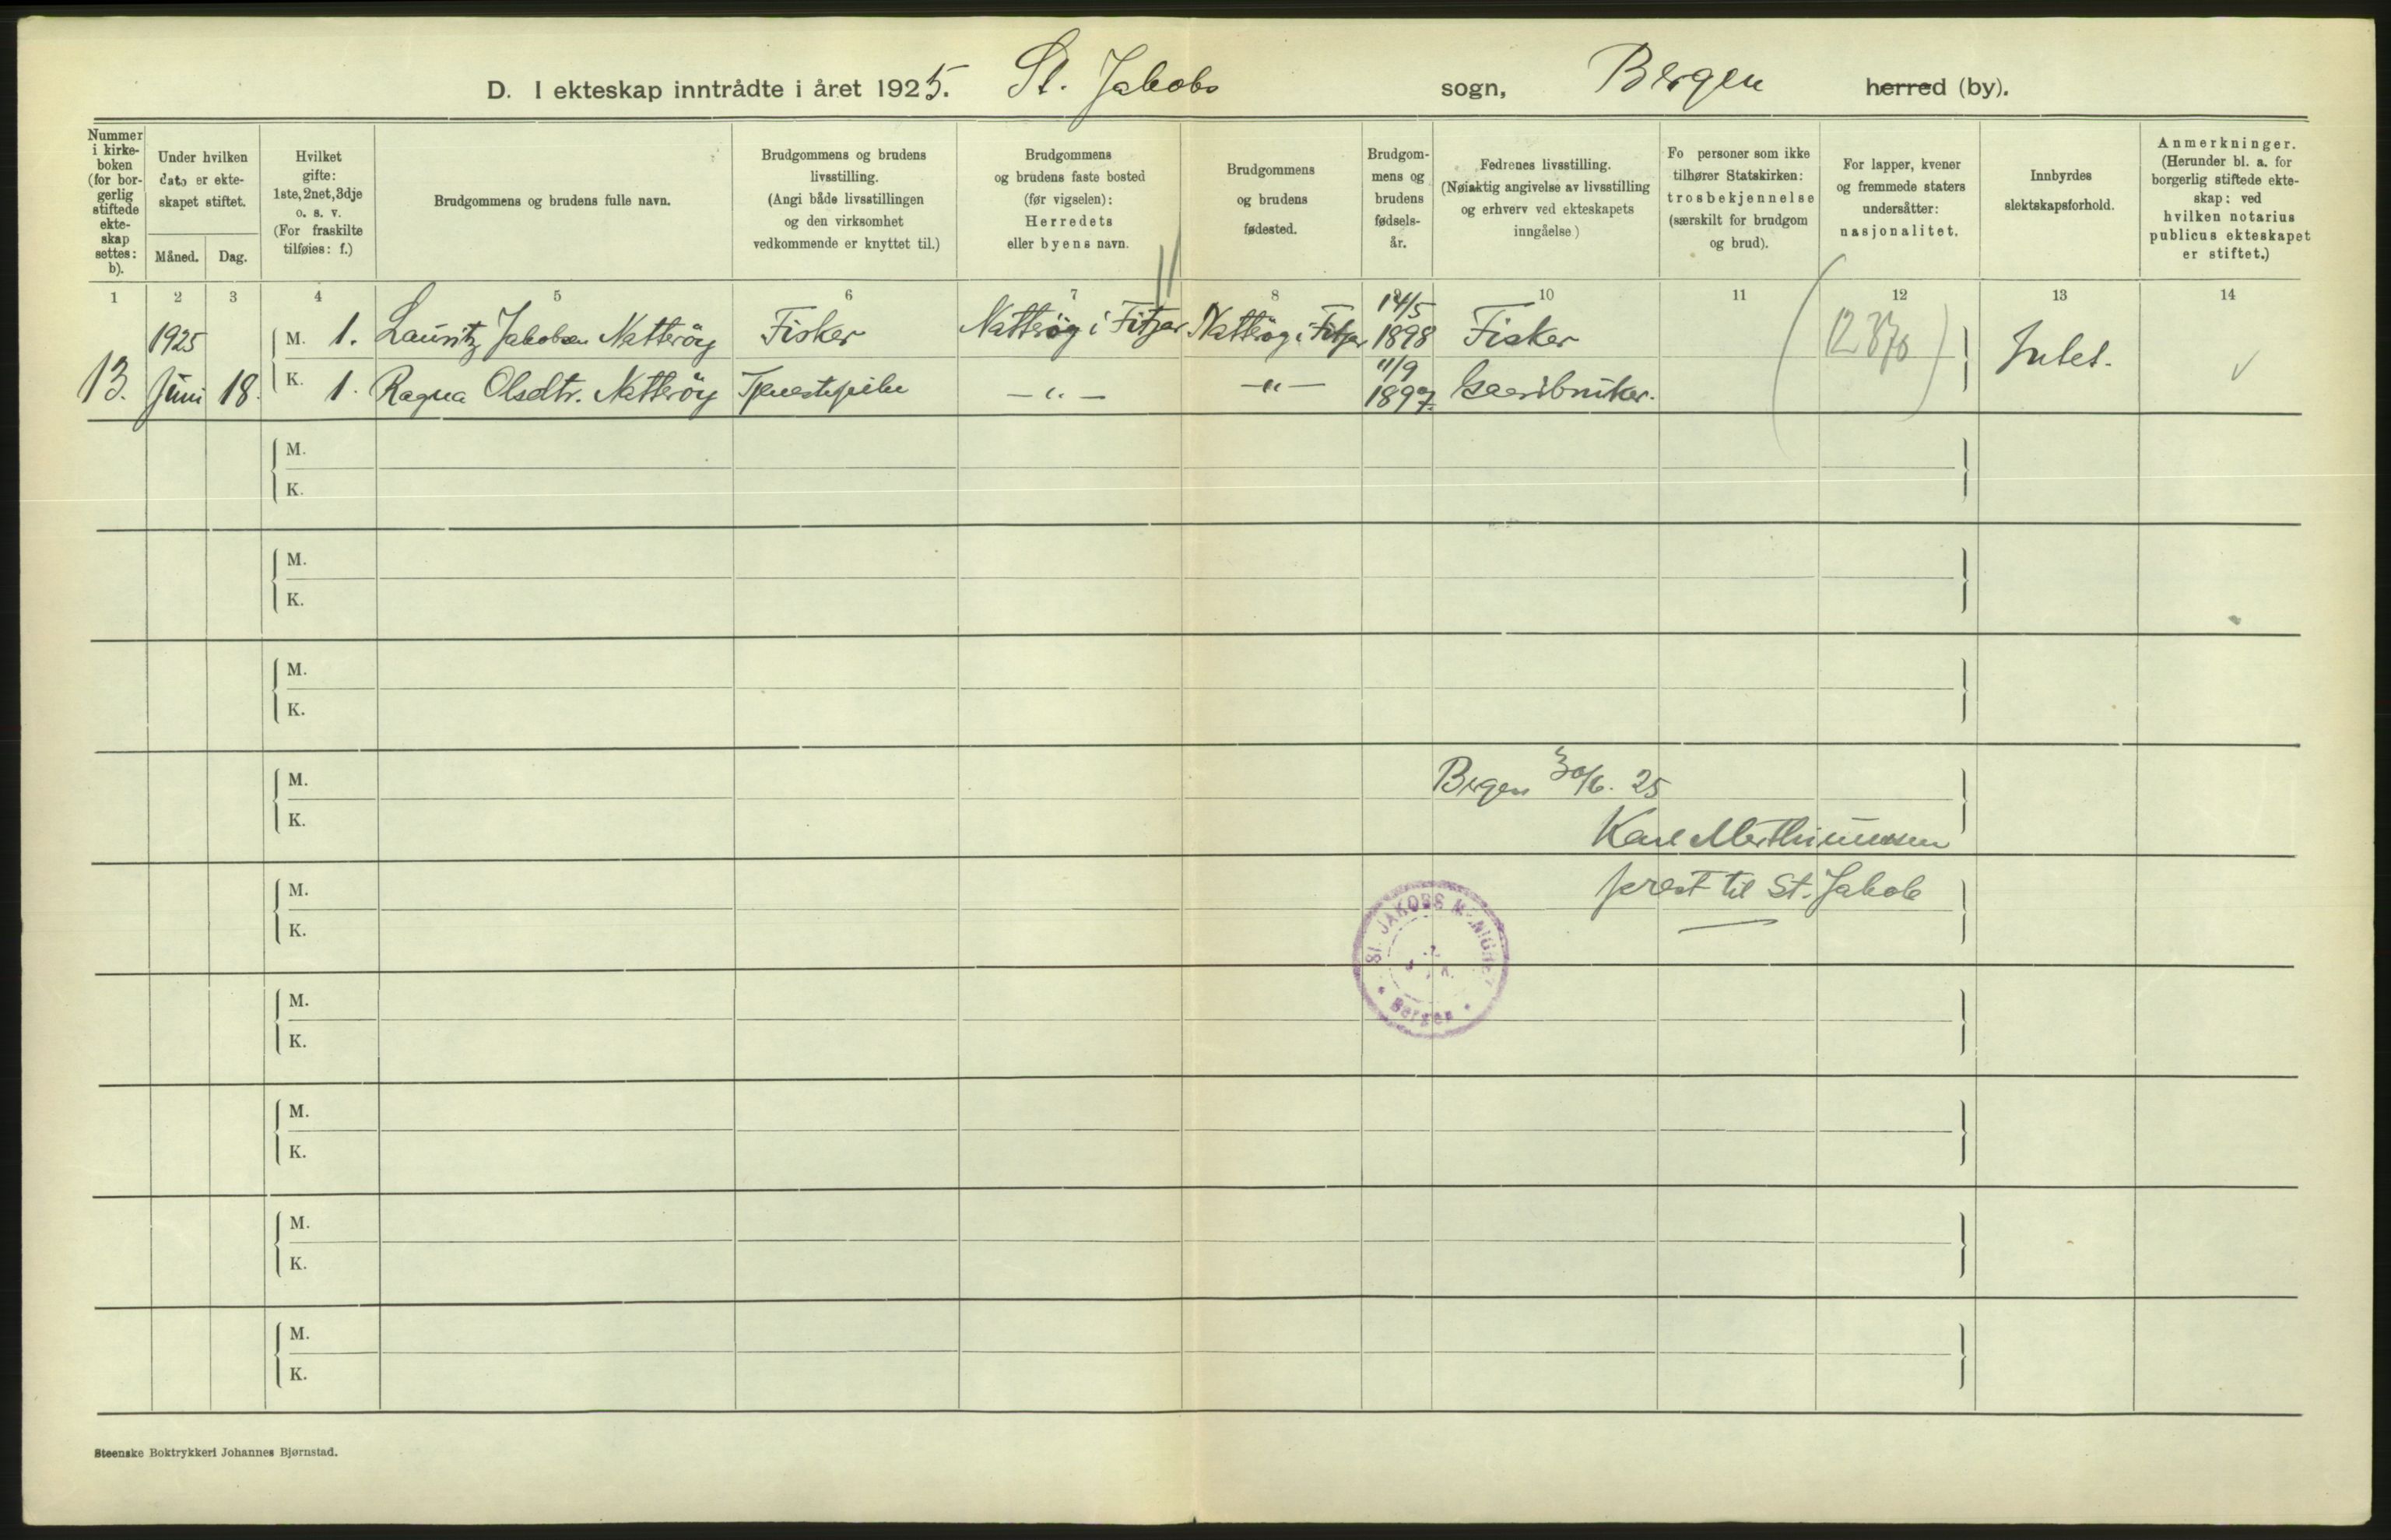 D. I ekteskap inntrådte i året 1925. St. Jakobs sogn, Bergen herred (by).
Nummer
i kirke-
boken
(for bor-
gerlig
stiftede
ekte-
skap
settes:
b).
Under hvilken
dato er ekte-
skapet stiftet.
Måned.
Dag.
Hvilket
gifte:
1ste, 2net, 3dje
o. s. v.
(For fraskilte
tilføies: f.)
Brudgommens og brudens fulle navn.
Brudgommens og brudens
livsstilling.
(Angi både livsstillingen
og den virksomhet
vedkommende er knyttet til.)
Brudgommens
og brudens faste bosted
(før vigselen):
Herredets
eller byens navn.
Brudgommens
og brudens
fødested.
Brudgom-
mens og
brudens
fødsels-
år.
Fedrenes livsstilling.
(Nøiaktig angivelse av livsstilling
og erhverv ved ekteskapets
inngåelse)
Fo personer som ikke
tilhører Statskirken:
trosbekjennelse
(særskilt for brudgom
og brud).
For lapper, kvener
og fremmede staters
undersåtter:
nasjonalitet.
Innbyrdes
slektskapsforhold.
Anmerkninger.
(Herunder bl. a. for
borgerlig stiftede ekte-
skap: ved
hvilken notarius
publicus ekteskapet
er stiftet.)
1 2 3 4 5 6 7 8 9 10 11 12 13 14
1925 M. 1. Lauritz Jakobsen Natterøy Fisker Natterøy i Fitjar Natterøy i Fitjar 14/5 1898 Fisker Intet.
13. Juni 18. K. 1. Ragna Olsdtr. Natterøy Tjenestepike — " — — " — 11/9 1897. Gaardbruker.
M.
K.
M.
K.
M.
K.
M.
K.
Bergen 30/6. 25
Karl Marthinussen
prest til St. Jakob
M.
K.
St. JAKOBS MENIGHET
Bergen
M.
K.
M.
K.
M.
K.
M.
K.
Steenske Boktrykkeri Johannes Bjørnstad.